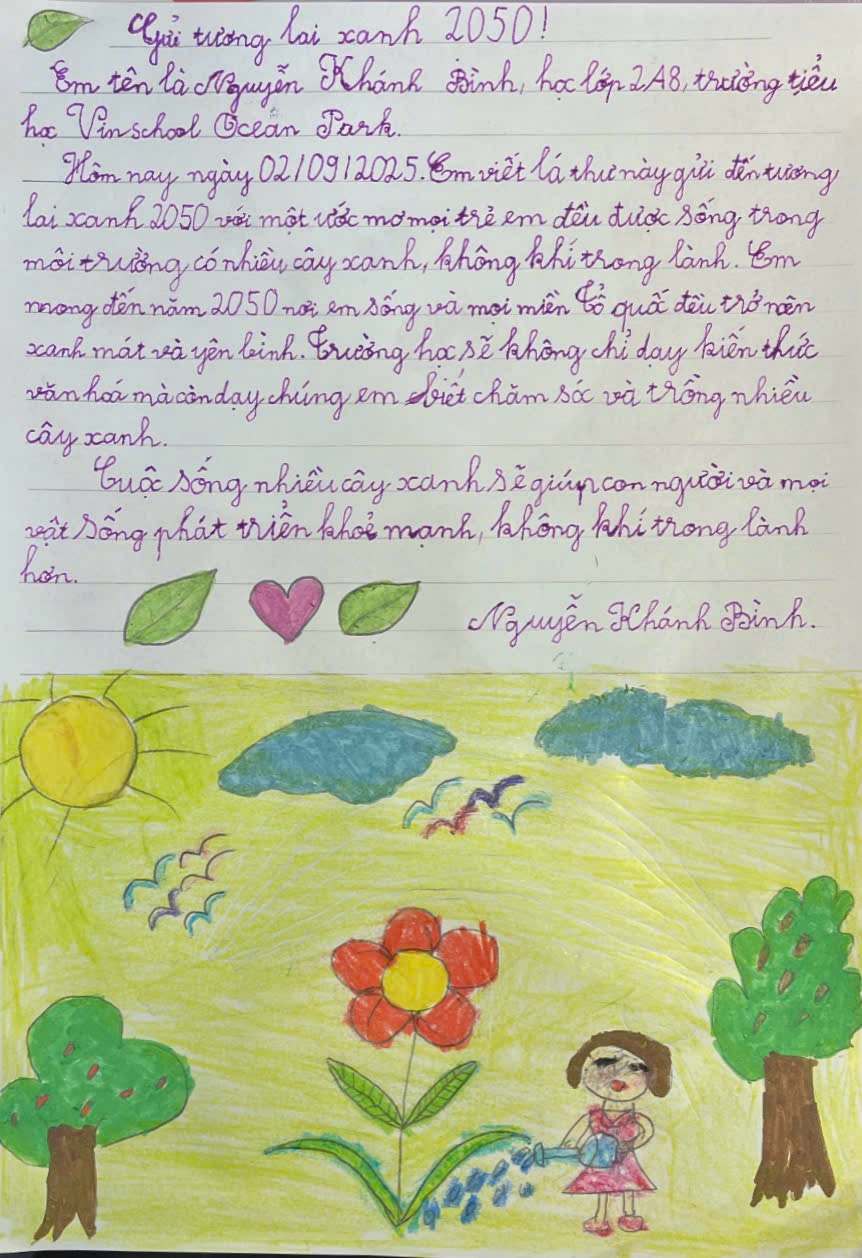 Gửi tương lai xanh 2050!
Em tên là Nguyễn Khánh Bình, học lớp 2A8, trường tiểu
học Vinschool Ocean Park.
Hôm nay ngày 02/09/2025. Em viết lá thư này gửi đến tương
lai xanh 2050 với một ước mơ mọi trẻ em đều được sống trong
môi trường có nhiều cây xanh, không khí trong lành. Em
mong đến năm 2050 nơi em sống và mọi miền Tổ quốc đều trở nên
xanh mát và yên bình. Trường học sẽ không chỉ dạy kiến thức
văn hoá mà còn dạy chúng em biết chăm sóc và trồng nhiều
cây xanh.
Cuộc sống nhiều cây xanh sẽ giúp con người và mọi
vật sống phát triển khoẻ mạnh, không khí trong lành
hơn.
Nguyễn Khánh Bình.